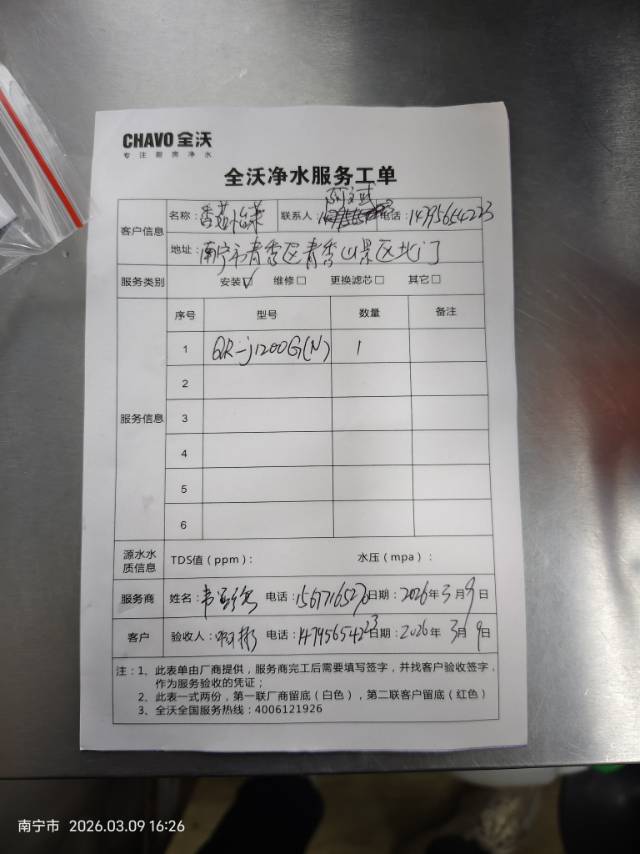 CHAVO 全沃
专注厨房净水
全沃净水服务工单
客户信息 名称: 香菇怡莱 联系人: 电话: 14795654223
地址: 南宁市青秀区青秀山景区北门
服务类别 安装☑ 维修□ 更换滤芯□ 其它□
服务信息 序号 型号 数量 备注
1 QR-j1200G(N) 1
2
3
4
5
6
源水水质信息 TDS值(ppm): 水压(mpa):
服务商 姓名: 韦 电话: 日期: 2026年3月9日
客户 验收人: 电话: 14795654223 日期: 2026年3月9日
注: 1、此表单由厂商提供,服务商完工后需要填写签字,并找客户验收签字,
作为服务验收的凭证;
2、此表一式两份,第一联厂商留底(白色),第二联客户留底(红色)
3、全沃全国服务热线: 4006121926
南宁市 2026.03.09 16:26